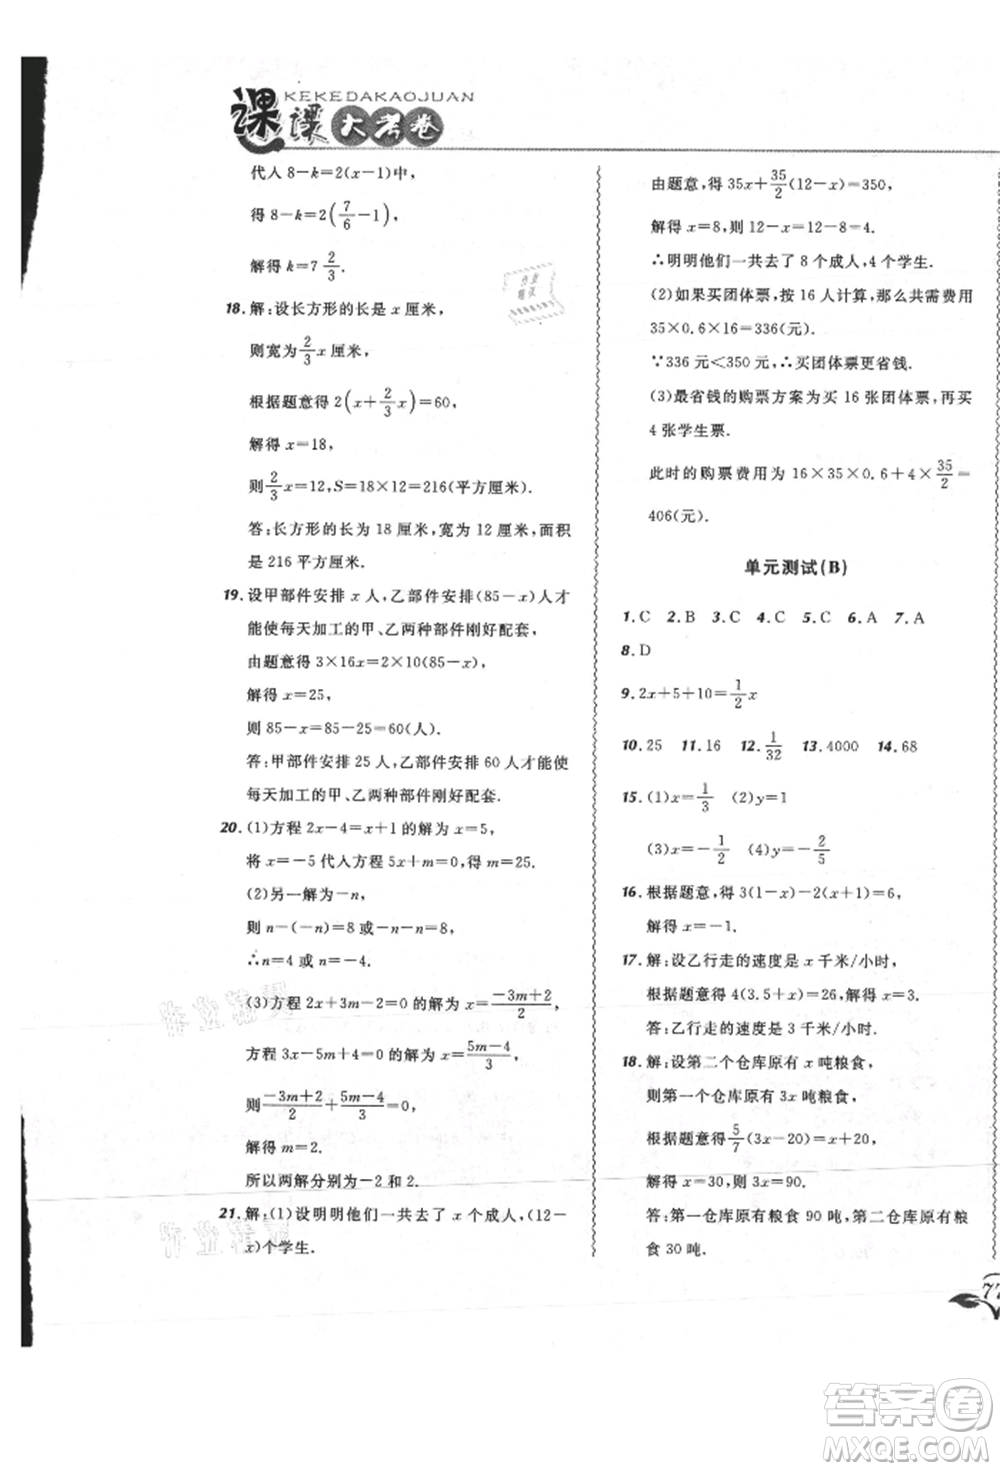 KEKEDAKAOJUAN
课课大考卷
代入 8－k＝2(x－1)中,
得 8－k＝2(7/6－1),
解得 k＝7 2/3.
18. 解:设长方形的长是 x 厘米,
则宽为 2/3 x 厘米,
根据题意得 2(x＋2/3 x)＝60,
解得 x＝18,
则 2/3 x＝12,S＝18×12＝216(平方厘米).
答:长方形的长为 18 厘米,宽为 12 厘米,面积
是 216 平方厘米.
19. 设甲部件安排 x 人,乙部件安排(85－x)人才
能使每天加工的甲、乙两种部件刚好配套,
由题意得 3×16x＝2×10(85－x),
解得 x＝25,
则 85－x＝85－25＝60(人).
答:甲部件安排 25 人,乙部件安排 60 人才能使
每天加工的甲、乙两种部件刚好配套.
20. (1)方程 2x－4＝x＋1 的解为 x＝5,
将 x＝－5 代入方程 5x＋m＝0,解得 m＝25.
(2)另一解为－n,
则 n－(－n)＝8 或－n－n＝8,
∴n＝4 或 n＝－4.
(3)方程 2x＋3m－2＝0 的解为 x＝(－3m＋2)/2,
方程 3x－5m＋4＝0 的解为 x＝(5m－4)/3,
则(－3m＋2)/2＋(5m－4)/3＝0,
解得 m＝2.
所以两解分别为－2 和 2.
21. 解:(1)设明明他们一共去了 x 个成人,(12－
x)个学生.
由题意,得 35x＋35/2(12－x)＝350,
解得 x＝8,则 12－x＝12－8＝4.
∴明明他们一共去了 8 个成人,4 个学生.
(2)如果买团体票,按 16 人计算,那么共需费用
35×0.6×16＝336(元).
∵336 元＜350 元,∴买团体票更省钱.
(3)最省钱的购票方案为买 16 张团体票,再买
4 张学生票.
此时的购票费用为 16×35×0.6＋4×35/2＝
406(元).
单元测试(B)
1. C 2. B 3. C 4. C 5. C 6. A 7. A
8. D
9. 2x＋5＋10＝1/2 x
10. 25 11. 16 12. 1/32 13. 4000 14. 68
15. (1)x＝1/3 (2)y＝1
(3)x＝－1/2 (4)y＝－2/5
16. 根据题意,得 3(1－x)－2(x＋1)＝6,
解得 x＝－1.
17. 解:设乙行走的速度为 x 千米/小时,
根据题意得 4(3.5＋x)＝26,解得 x＝3.
答:乙行走的速度是 3 千米/小时.
18. 解:设第二个仓库原有 x 吨粮食,
则第一个仓库原有 3x 吨粮食,
根据题意得 5/7(3x－20)＝x＋20,
解得 x＝30,3x＝90.
答:第一仓库原有粮食 90 吨,第二仓库原有粮
食 30 吨.
77
答案圈
MXQE.COM